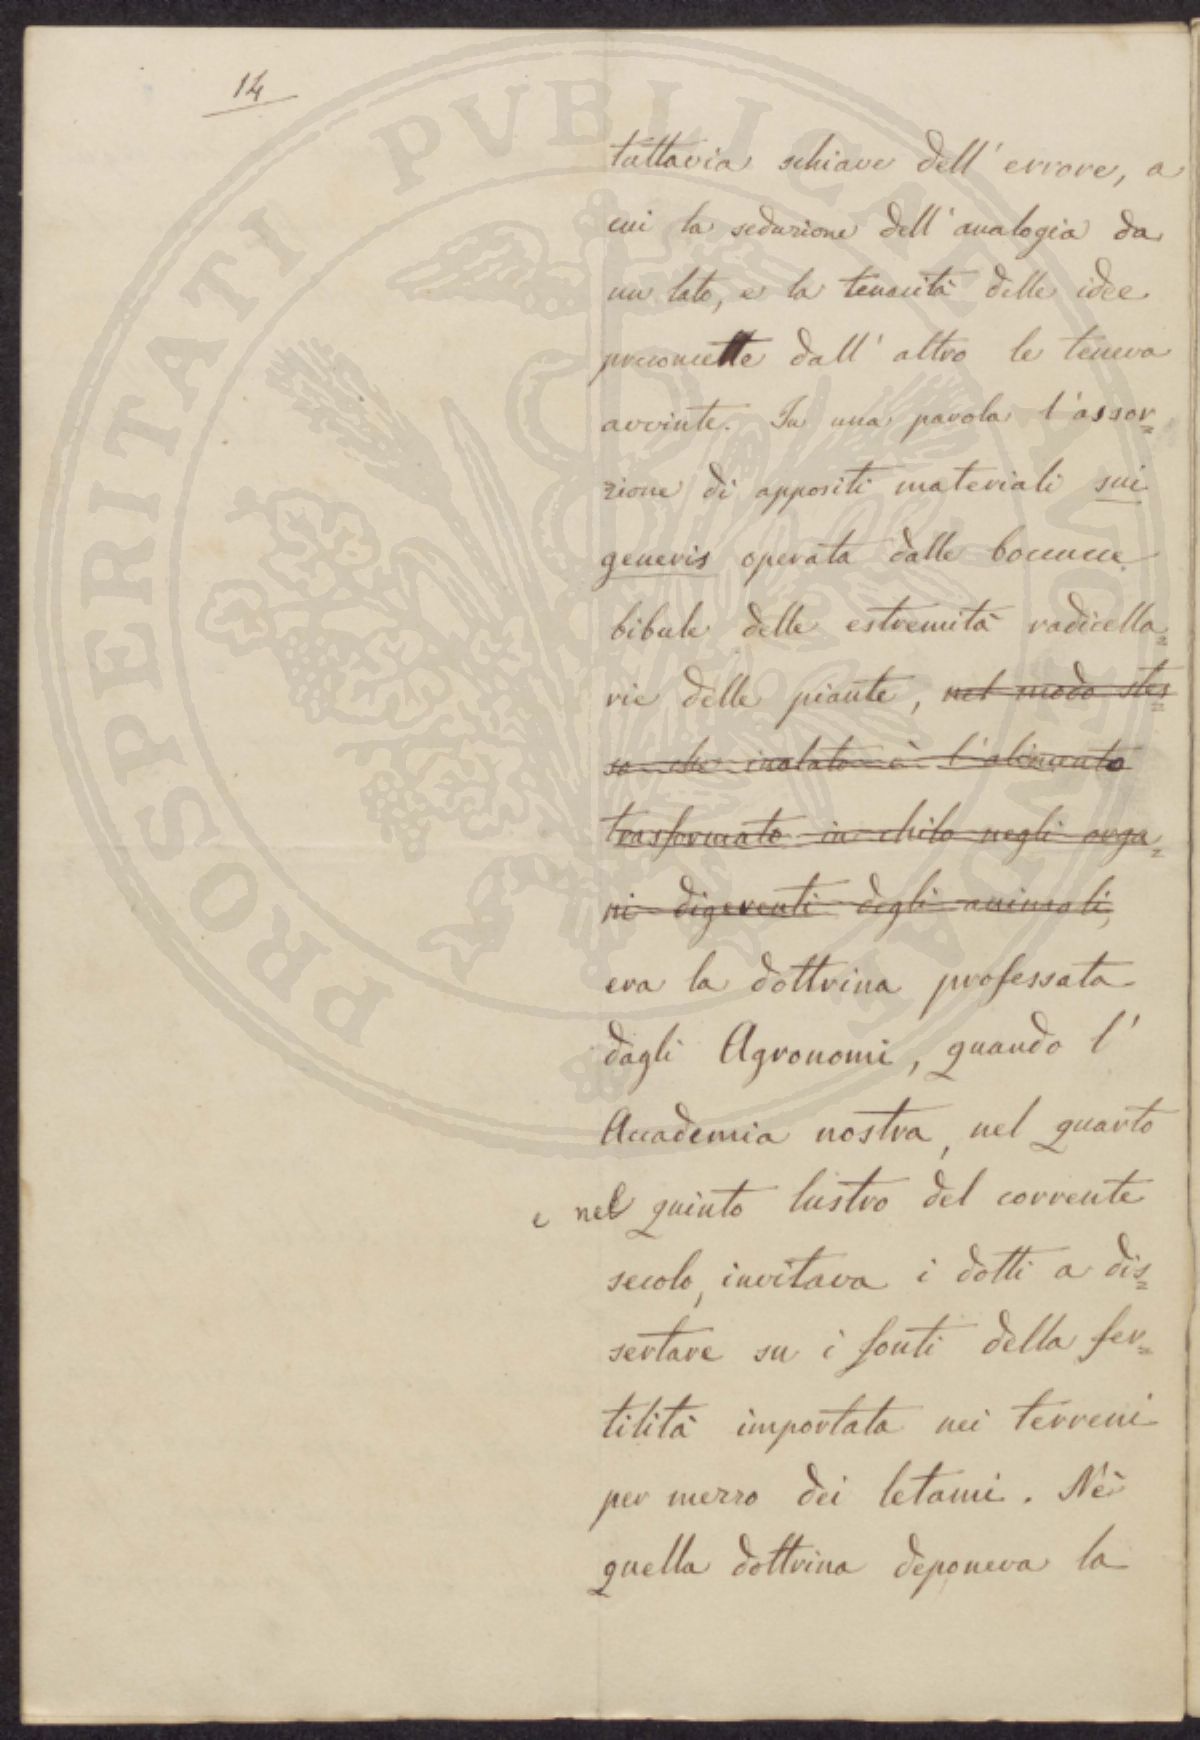 14
tuttavia schiave dell'errore, a
cui la seduzione dell'analogia da
un lato, e la tenacità delle idee
preconcette dall'altro le teneva
avvinte. In una parola l'assor=
zione di appositi materiali sui
generis operata dalle boccucce
bibule delle estremità radicella=
rie delle piante, nel modo stes=
so che inalato è l'alimento
trasformato in chilo negli orga=
ni digerenti degli animali,
era la dottrina professata
dagli Agronomi, quando l'
Accademia nostra, nel quarto
e nel quinto lustro del corrente
secolo, invitava i dotti a dis=
sertare su i fonti della fer=
tilità importata nei terreni
per mezzo dei letami. Nè
quella dottrina deponeva la
PROSPERITATI PVBLICAE AVGENDAE